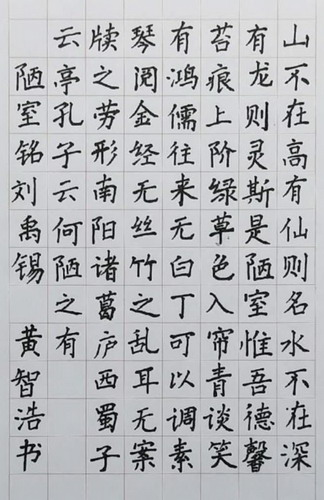 山不在高有仙则名水不在深
有龙则灵斯是陋室惟吾德馨
苔痕上阶绿草色入帘青谈笑
有鸿儒往来无白丁可以调素
琴阅金经无丝竹之乱耳无案
牍之劳形南阳诸葛庐西蜀子
云亭孔子云何陋之有
陋室铭刘禹锡 黄智浩书